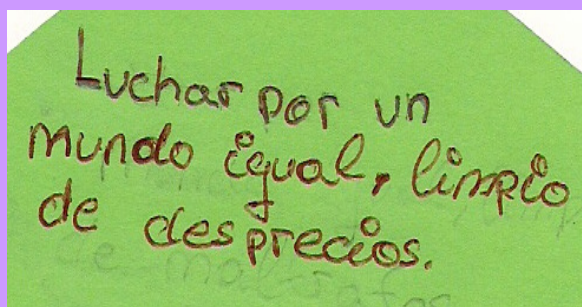 Luchar por un
mundo igual, limpio
de desprecios.